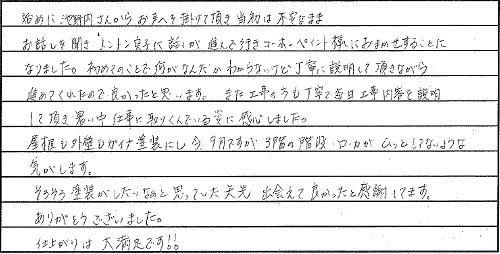 始めに池野内さんからお声を掛けて頂き当初は不安なまま
お話しを聞きトントン拍子に話しが進んで行きコーホーペイント様におまかせすることに
なりました。初めてのことで何がなんだかわからないけど丁寧に説明して頂きながら
進めてくれたので良かったと思います。また工事の方も丁寧で毎日工事内容を説明
して頂き暑い中仕事に取りくんでいる姿に感心しました。
屋根も外壁もガイナ塗装にし今9月ですが3階の階段・ローカがムッとしてないような
気がします。
そろそろ塗装がしたいなぁと思っていた矢先 出会えて良かったと感謝してます。
ありがとうございました。
仕上がりは大満足です!!